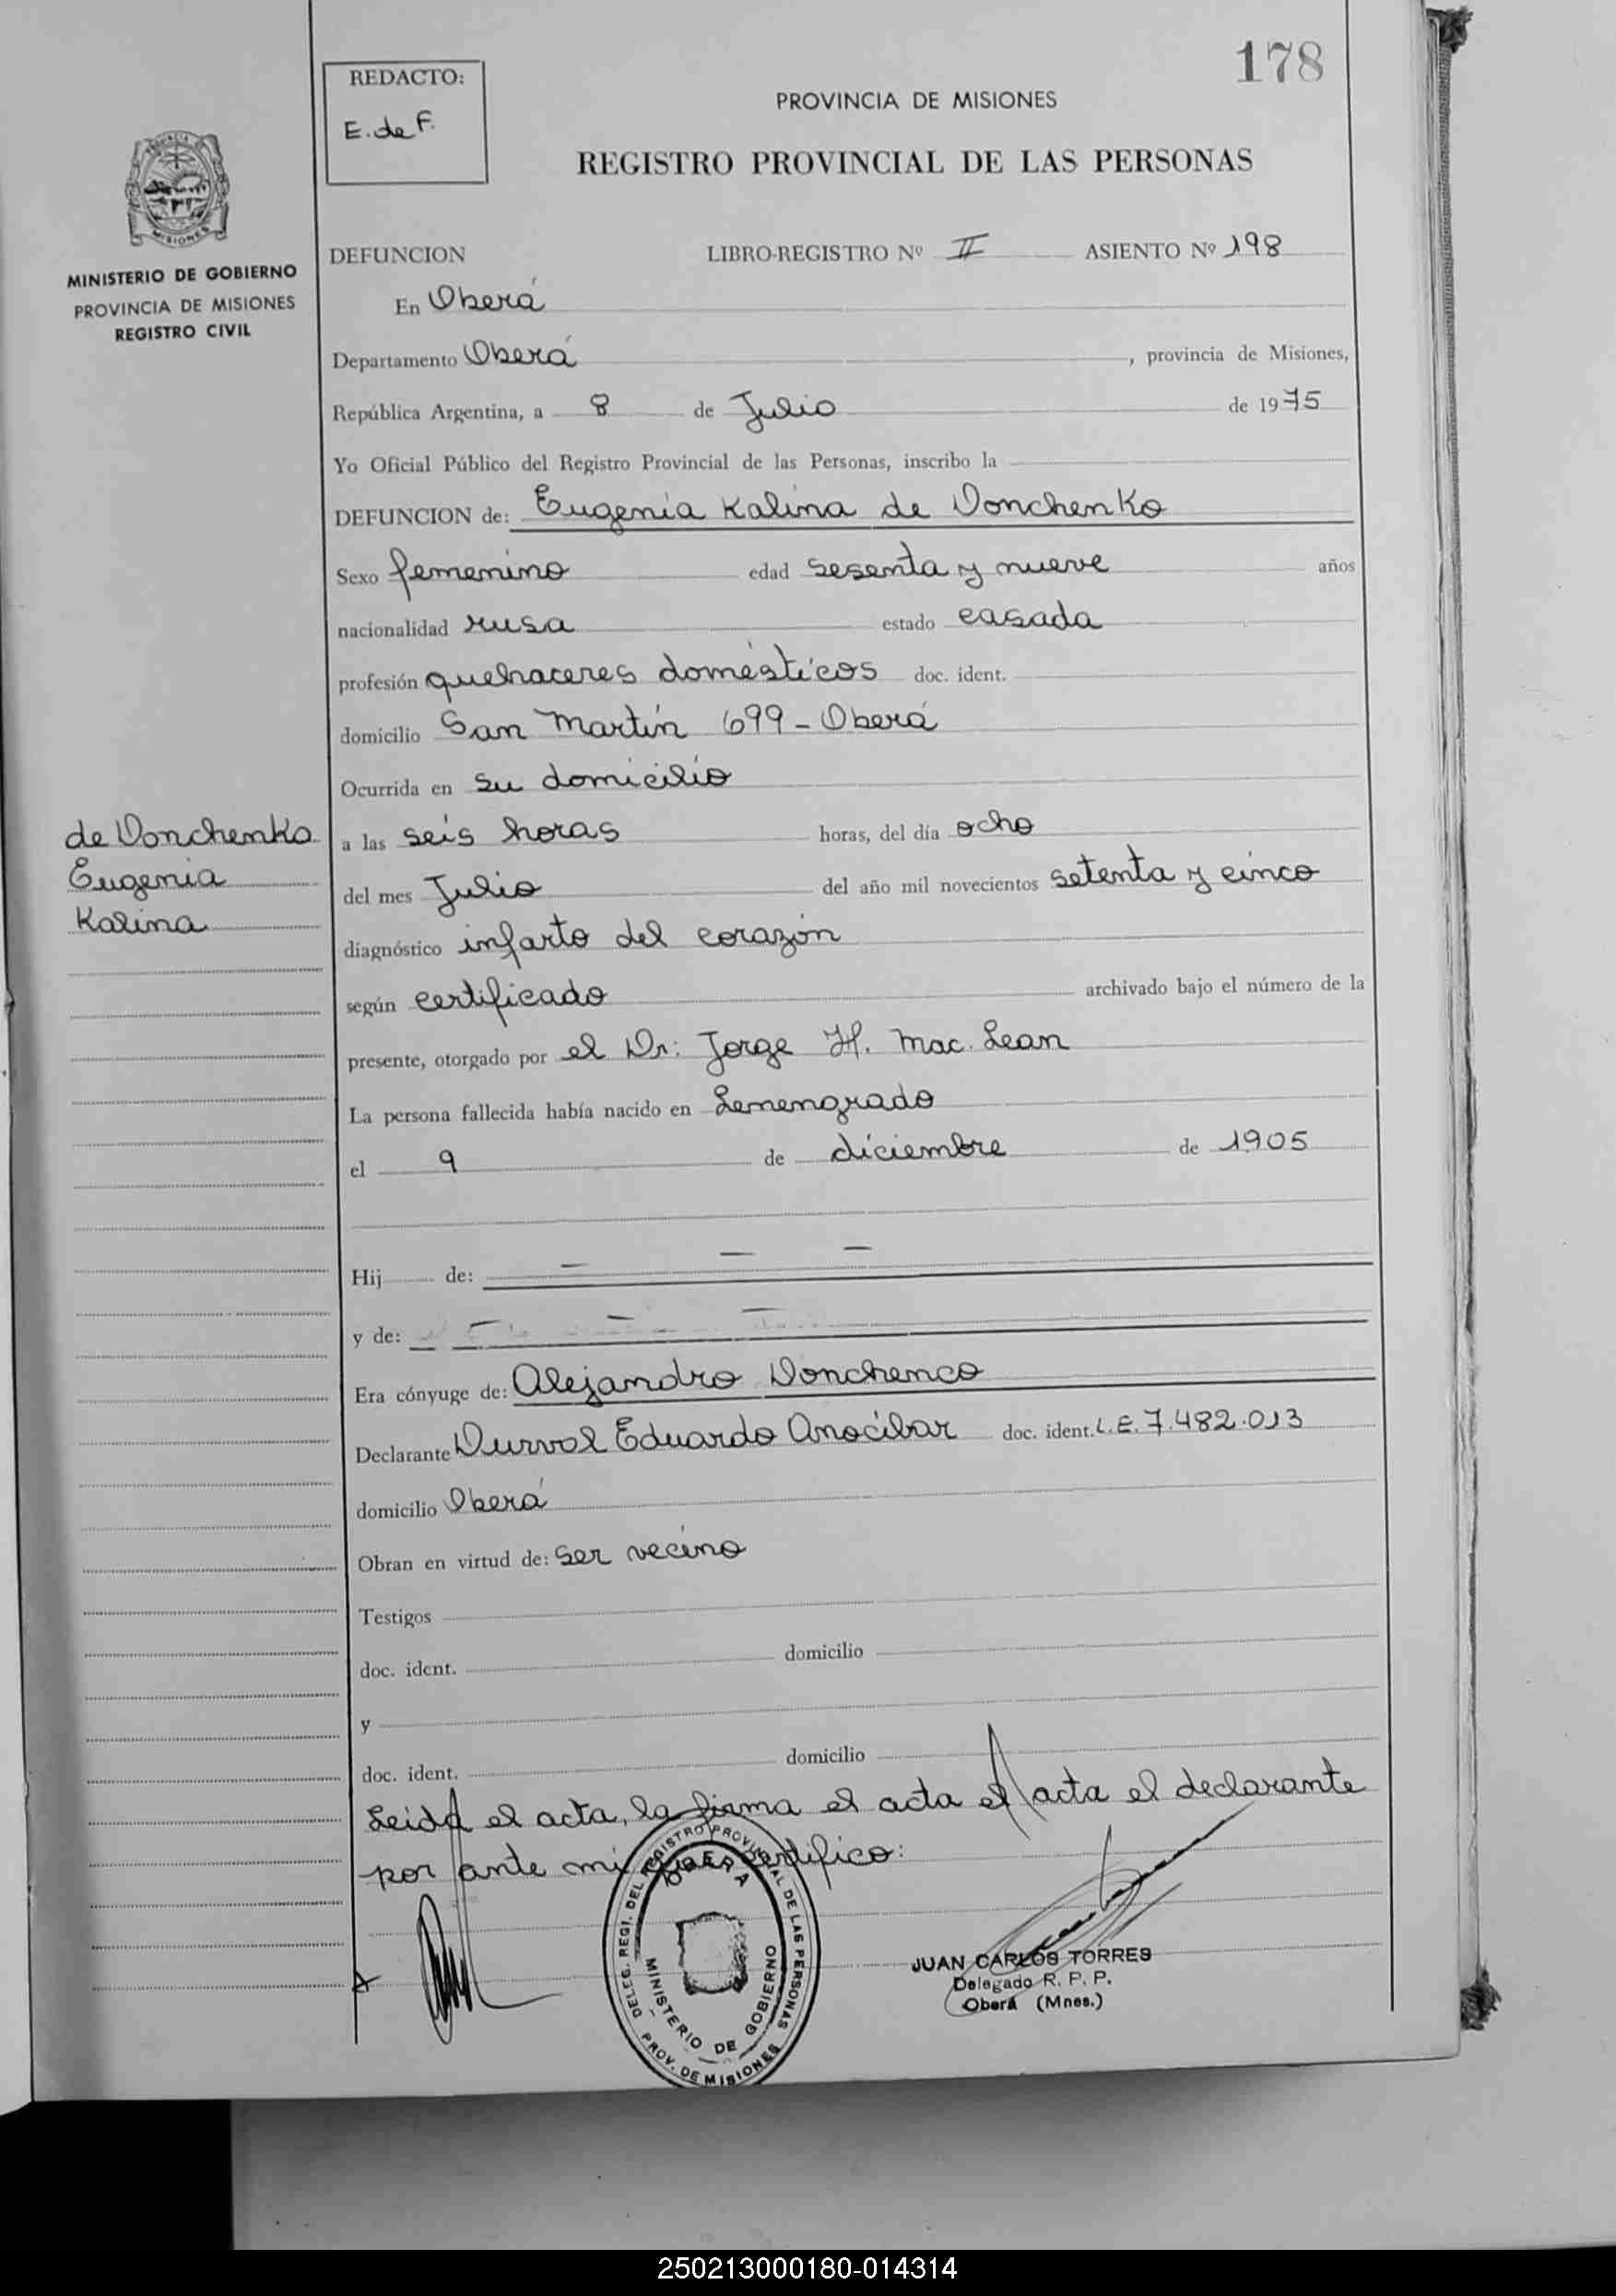 178
REDACTO:
E. de F.
PROVINCIA DE MISIONES
REGISTRO PROVINCIAL DE LAS PERSONAS
MISIONES
MINISTERIO DE GOBIERNO
PROVINCIA DE MISIONES
REGISTRO CIVIL
DEFUNCION LIBRO-REGISTRO Nº II ASIENTO Nº 198
En Oberá
Departamento Oberá, provincia de Misiones,
República Argentina, a 8 de Julio de 1975
Yo Oficial Público del Registro Provincial de las Personas, inscribo la
DEFUNCION de: Eugenia Kalina de Donchenko
Sexo femenino edad sesenta y nueve años
nacionalidad rusa estado casada
profesión quehaceres domésticos doc. ident.
domicilio San Martín 699 - Oberá
Ocurrida en su domicilio
de Donchenko
Eugenia
Kalina
a las seis horas horas, del día ocho
del mes Julio del año mil novecientos setenta y cinco
diagnóstico infarto del corazón
según certificado archivado bajo el número de la
presente, otorgado por el Dr: Jorge H. Mac. Lean
La persona fallecida había nacido en Lenengrado
el 9 de diciembre de 1905
Hij de: — — —
y de: — — —
Era cónyuge de: Alejandro Donchenco
Declarante Durval Eduardo Anocibar doc. ident. L.E. 7.482.013
domicilio Oberá
Obran en virtud de: ser vecino
Testigos
doc. ident. domicilio
y
doc. ident. domicilio
Leida el acta, la firma el acta el acta el declarante
por ante mi que certifico:
DELEG. REGI. DEL REGISTRO PROVINCIAL DE LAS PERSONAS
OBERA
MINISTERIO DE GOBIERNO
PROV. DE MISIONES
JUAN CARLOS TORRES
Delegado R. P. P.
Oberá (Mnes.)
250213000180-014314